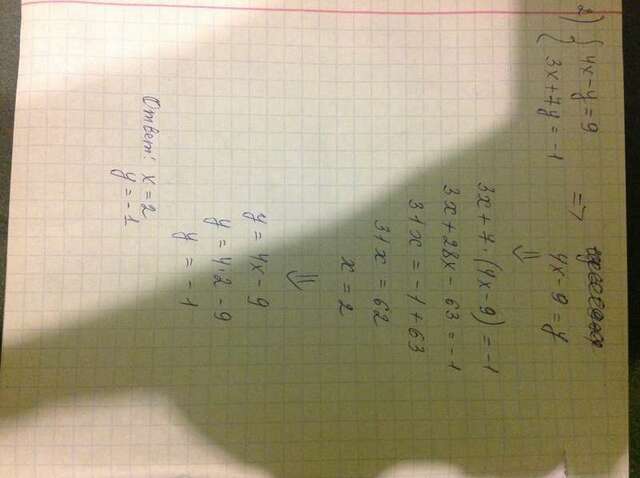 2) { 4x-y=9
3x+7y=-1
=>
4x-9=y
⇓
3x+7·(4x-9)=-1
3x+28x-63=-1
31x=-1+63
31x=62
x=2
⇓
y=4x-9
y=4·2-9
y=-1
Ответ: x=2
y=-1